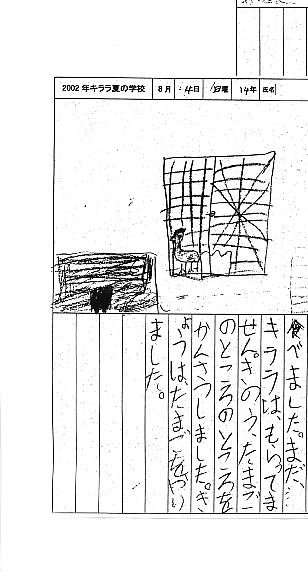 2002年キララ夏の学校 8月 4日 日曜 14年 氏名
食べました。まだ、
キララは、もらってま
せん。きのう、たまご
のところのところを
かんさつしました。き
ょうは、たまごを
ました。